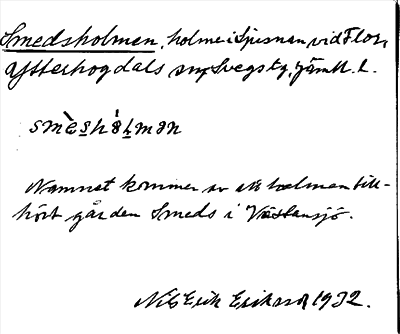 Smedsholmen, holme i Ljusnan vid Flor,
Ytterhogdals sn, Svegs tg, Jämtl. l.
smèshólman
Namnet kommer av att holmen till-
hört gården Smeds i Västansjö.
Nils Erik Eriksson 1932.